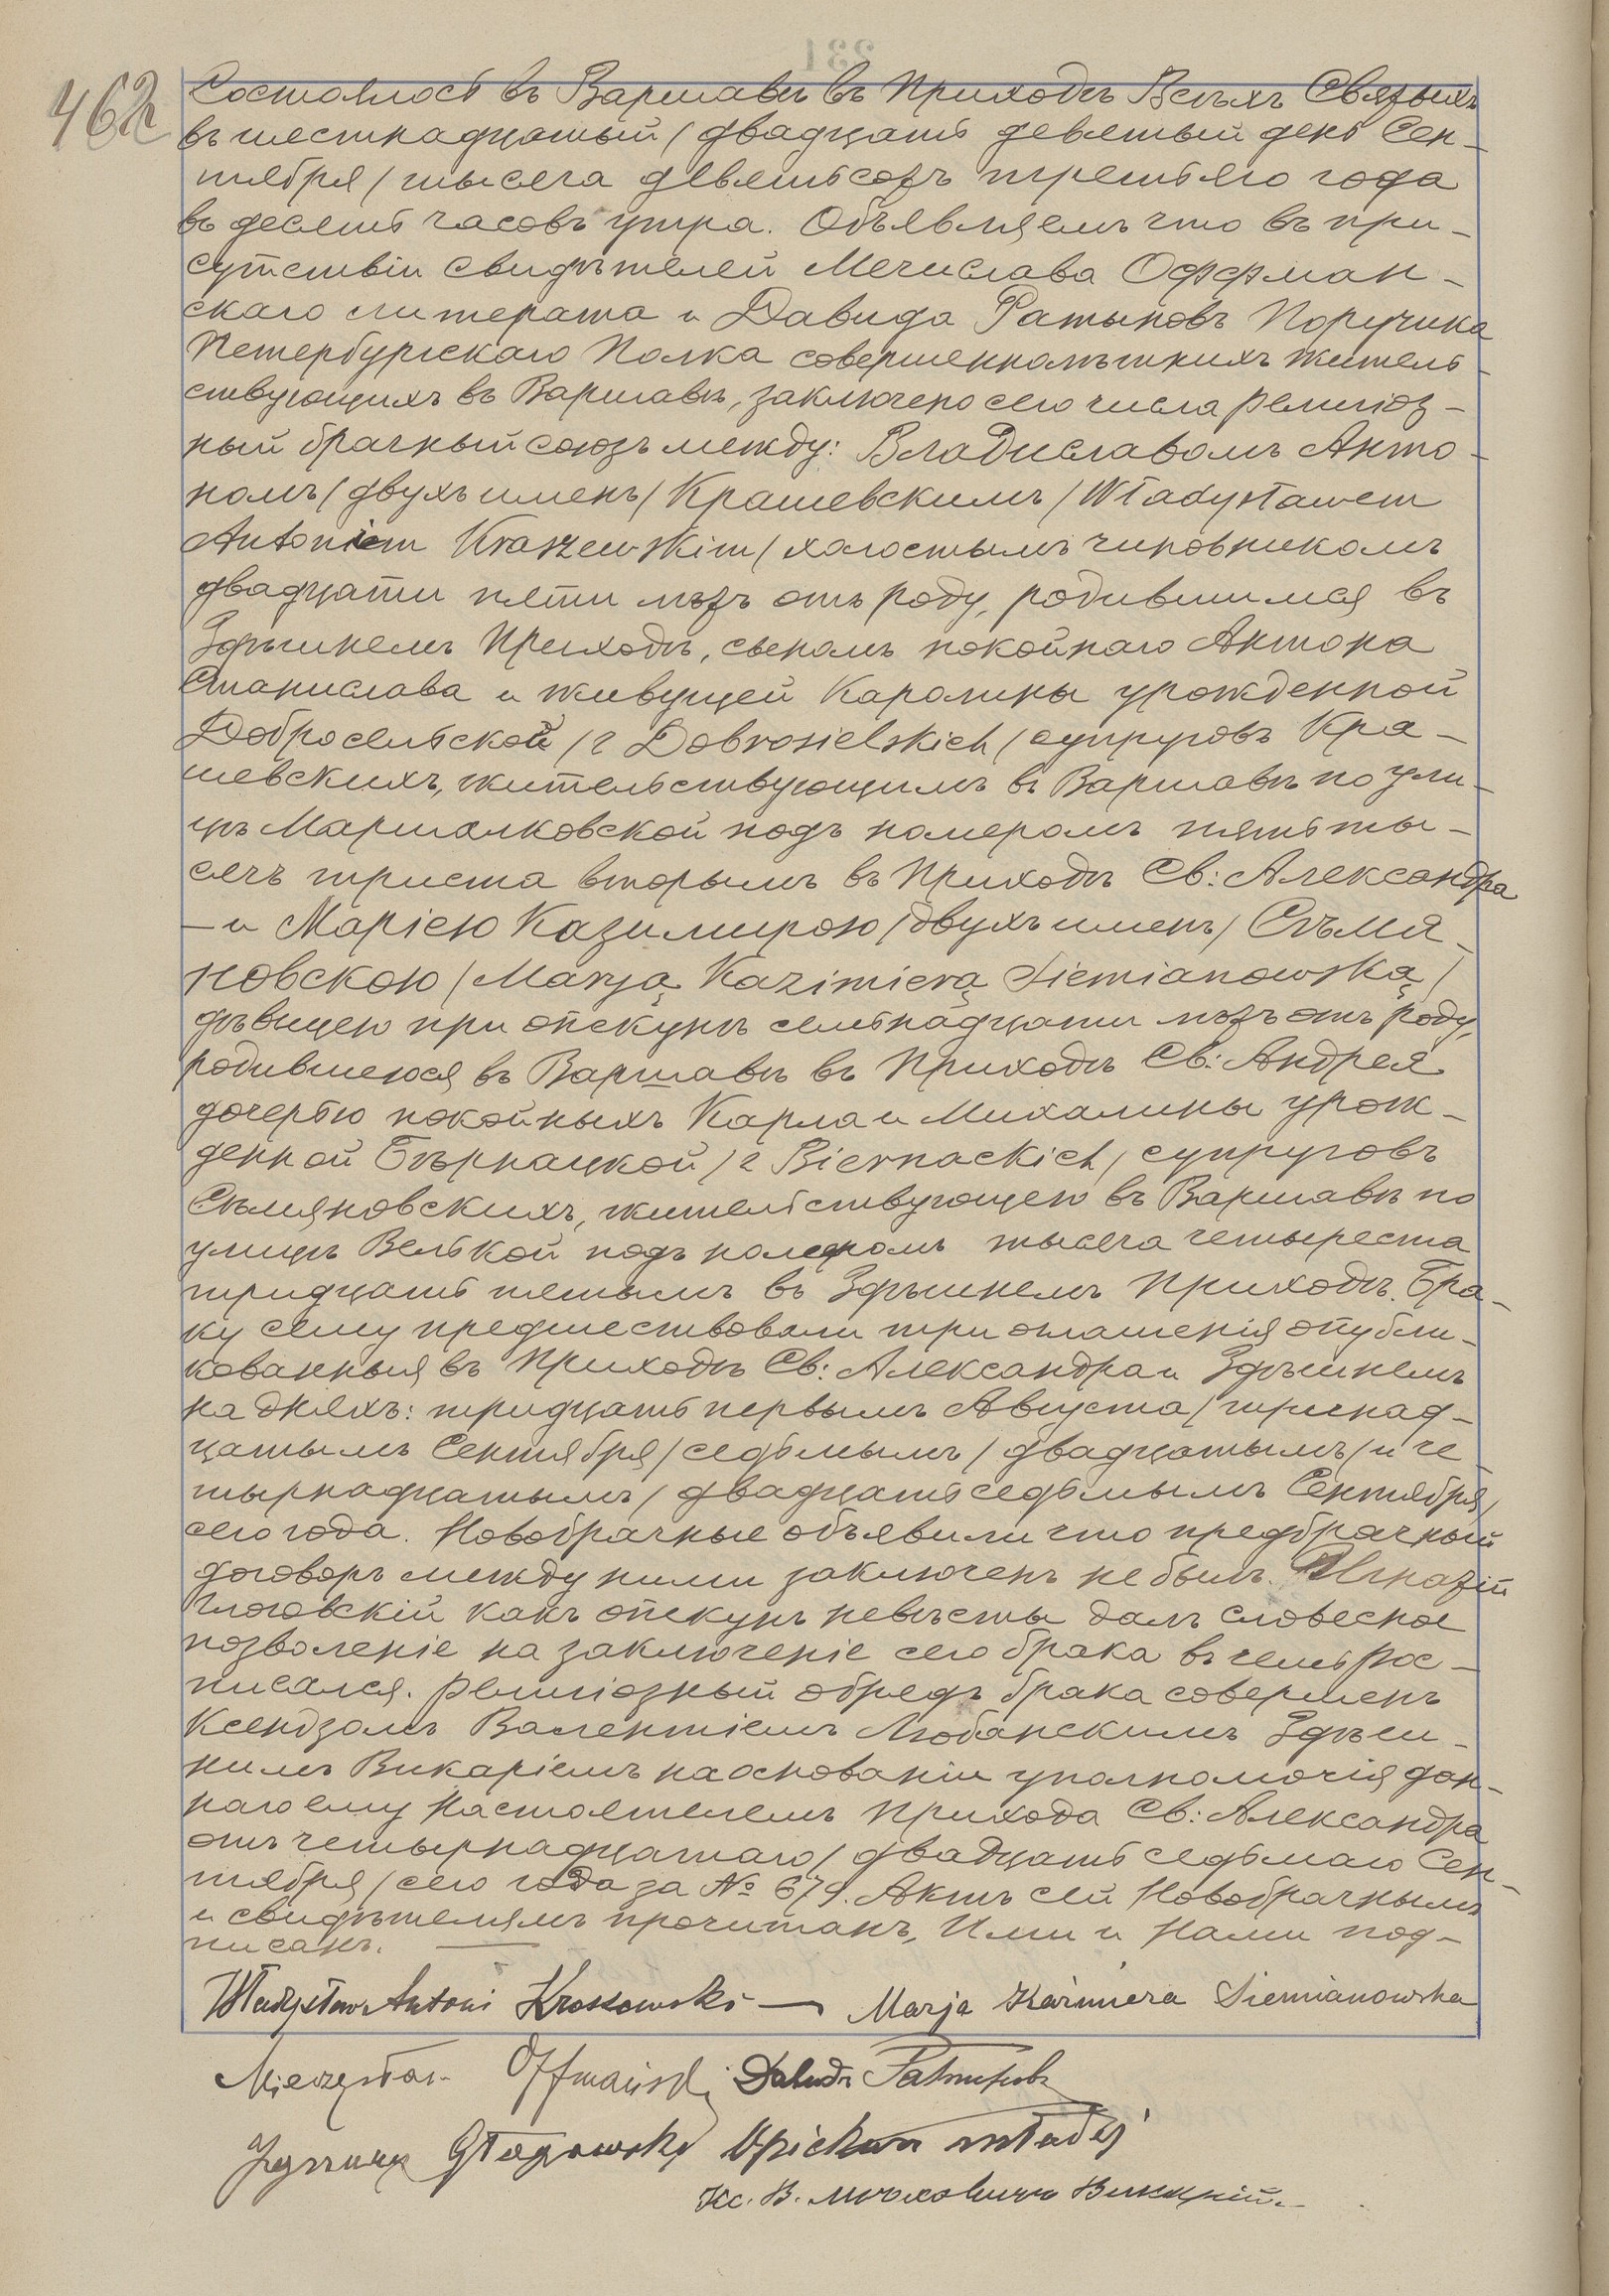 462
Состоялось въ Варшавѣ въ Приходѣ Всѣхъ Святыхъ
въ шестнадцатый / двадцать девятый день Сен-
тября / тысяча девятьсотъ третьяго года
въ десять часовъ утра. Объявляемъ что въ при-
сутствіи свидѣтелей Мечислава Оффман-
скаго литерата и Давида Ратыновъ Поручика
Петербургскаго Полка совершеннолѣтнихъ житель-
ствующихъ въ Варшавѣ, заключено сего числа религіоз-
ный брачный союзъ между: Владиславомъ Анто-
номъ / двухъ именъ / Крашевскимъ / Władysławem
Antonim Kraszewskim / холостымъ чиновникомъ
двадцати пяти лѣтъ отъ роду, родившимся въ
Здѣшнемъ Приходѣ, сыномъ покойнаго Антона
Станислава и живущей Каролины урожденной
Добросельской / z Dobrosielskich / супруговъ Кра-
шевскихъ, жительствующимъ въ Варшавѣ по ули-
цѣ Маршалковской подъ номеромъ пять ты-
сячъ триста вторымъ въ Приходѣ Св: Александра
— и Маріею Казимирою / двухъ именъ / Сѣмя-
новскою / Marją Kazimierą Siemianowską /
дѣвицею при опекунѣ семнадцати лѣтъ отъ роду,
родившеюся въ Варшавѣ въ Приходѣ Св: Андрея
дочерью покойныхъ Карла и Михалины урож-
денной Бѣрнацкой / z Biernackich / супруговъ
Сѣмяновскихъ, жительствующею въ Варшавѣ по
улицѣ Велькой подъ номеромъ тысяча четыреста
тридцать пятымъ въ Здѣшнемъ Приходѣ. Бра-
ку сему предшествовали три оглашенія опубли-
кованныя въ Приходѣ Св: Александра и Здѣшнемъ
на дняхъ: тридцать первымъ Августа / тринад-
цатымъ Сентября / седьмымъ / двадцатымъ / и че-
тырнадцатымъ / двадцать седьмымъ Сентября /
сего года. Новобрачные объявили что предбрачный
договоръ между ними заключенъ не былъ. Игнатій
Глоговскій какъ опекунъ невѣсты далъ словесное
позволеніе на заключеніе сего брака въ чемъ рос-
писался. Религіозный обрядъ брака совершенъ
Ксендзомъ Валентіемъ Любанскимъ Здѣш-
нимъ Викаріемъ на основаніи уполномочія дан-
наго ему Настоятелемъ Прихода Св: Александра
отъ четырнадцатаго / двадцать седьмаго Сен-
тября / сего года за № 679. Актъ сей Новобрачнымъ
и свидѣтелямъ прочитанъ, Ими и Нами под-
писанъ. —
Władysław Antoni Kraszewski — Marja Kazimiera Siemianowska
Mieczysław Offmański Давидъ Ратыновъ
Ignacy Głogowski Opiekun młodej
Кс. В. Викарій